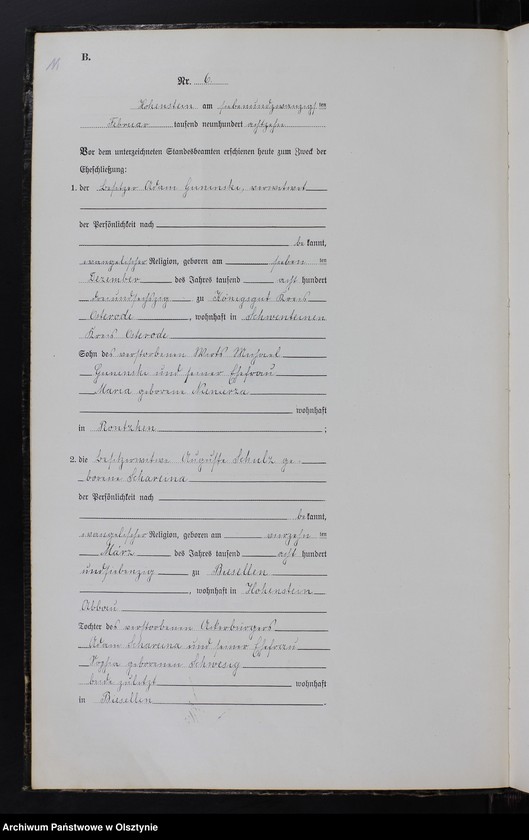 B.
Nr. 6
Hohenstein am siebenundzwanzigsten
Februar tausend neunhundert achtzehn
Vor dem unterzeichneten Standesbeamten erschienen heute zum Zweck der
Eheschließung:
1. der Besitzer Adam Guninski, verwitwet
der Persönlichkeit nach
be kannt,
evangelischer Religion, geboren am sieben ten
Dezember des Jahres tausend acht hundert
dreiundsechzig zu Königsgut Kreis
Osterode, wohnhaft in Schwenteinen
Kreis Osterode
Sohn des verstorbenen Wirts Michael
Guninski und seiner Ehefrau
Maria geborene
wohnhaft
in Rontzken;
2. die Besitzerwitwe Auguste Schulz ge-
borene Scharuna
der Persönlichkeit nach
be kannt,
evangelischer Religion, geboren am vierzehn ten
März des Jahres tausend acht hundert
undsiebenzig zu Biesellen
, wohnhaft in Hohenstein
Abbau
Tochter des verstorbenen Ackerbürgers
Adam Scharuna und seiner Ehefrau
Sophia geborenen Schwesig
beide zuletzt wohnhaft
in Biesellen.
Archiwum Państwowe w Olsztynie